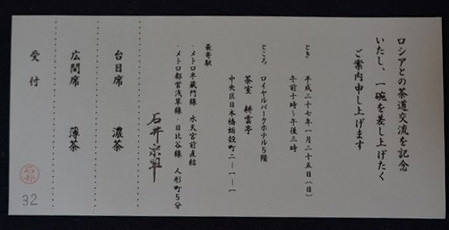 ロシアとの茶道交流を記念
いたし、一碗を差し上げたく
ご案内申し上げます
とき 平成二十七年一月二十五日(日)
午前十時~午後三時
ところ ロイヤルパークホテル5階
茶室 耕雲亭
中央区日本橋蛎殻町二-一-一
最寄駅
・メトロ半蔵門線 水天宮前直結
・メトロ都営浅草線・日比谷線 人形町5分
石井宗翠
台目席 濃茶
広間席 薄茶
受付
32